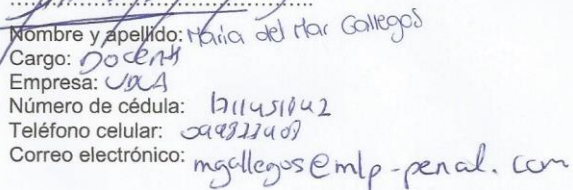 Nombre y apellido: Maria del Mar Gallegos
Cargo: Docente
Empresa: UDLA
Número de cédula:
Teléfono celular:
Correo electrónico: mgallegos@mlp-penal.com